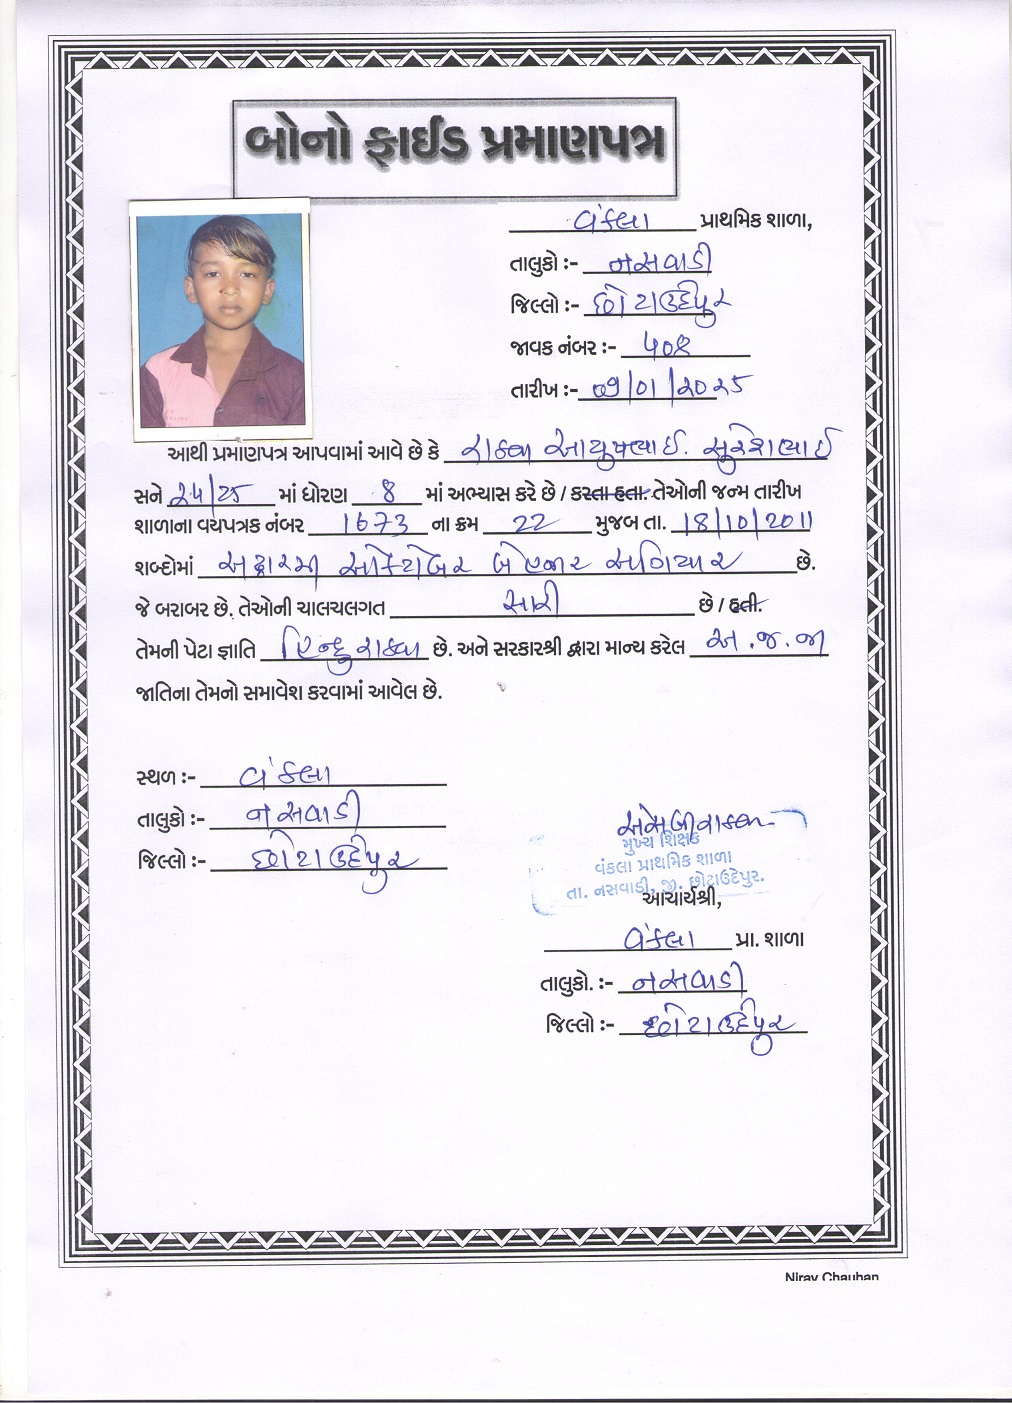 બોનો ફાઈડ પ્રમાણપત્ર
વંકલા પ્રાથમિક શાળા,
તાલુકો :- નસવાડી
જિલ્લો :- છોટાઉદેપુર
જાવક નંબર :- ૫૦૪
તારીખ :- ૦૭/૦૧/૨૦૨૫
આથી પ્રમાણપત્ર આપવામાં આવે છે કે રાઠવા આયુષભાઈ. સુરેશભાઈ
સને ૨૪/૨૫ માં ધોરણ ૪ માં અભ્યાસ કરે છે / કરતા હતા. તેઓની જન્મ તારીખ
શાળાના વયપત્રક નંબર 1673 ના ક્રમ 22 મુજબ તા. 18/10/2011
શબ્દોમાં અઢારમી ઓક્ટોબર બે હજાર અગિયાર છે.
જે બરાબર છે. તેઓની ચાલચલગત સારી છે / હતી.
તેમની પેટા જ્ઞાતિ હિન્દુ રાઠવા છે. અને સરકારશ્રી દ્વારા માન્ય કરેલ અ.જ.જા
જાતિના તેમનો સમાવેશ કરવામાં આવેલ છે.
સ્થળ :- વંકલા
તાલુકો :- નસવાડી
જિલ્લો :- છોટાઉદેપુર
મુખ્ય શિક્ષક
વંકલા પ્રાથમિક શાળા
તા. નસવાડી, જી. છોટાઉદેપુર.
આચાર્યશ્રી,
વંકલા પ્રા. શાળા
તાલુકો. :- નસવાડી
જિલ્લો :- છોટાઉદેપુર
Nirav Chauhan